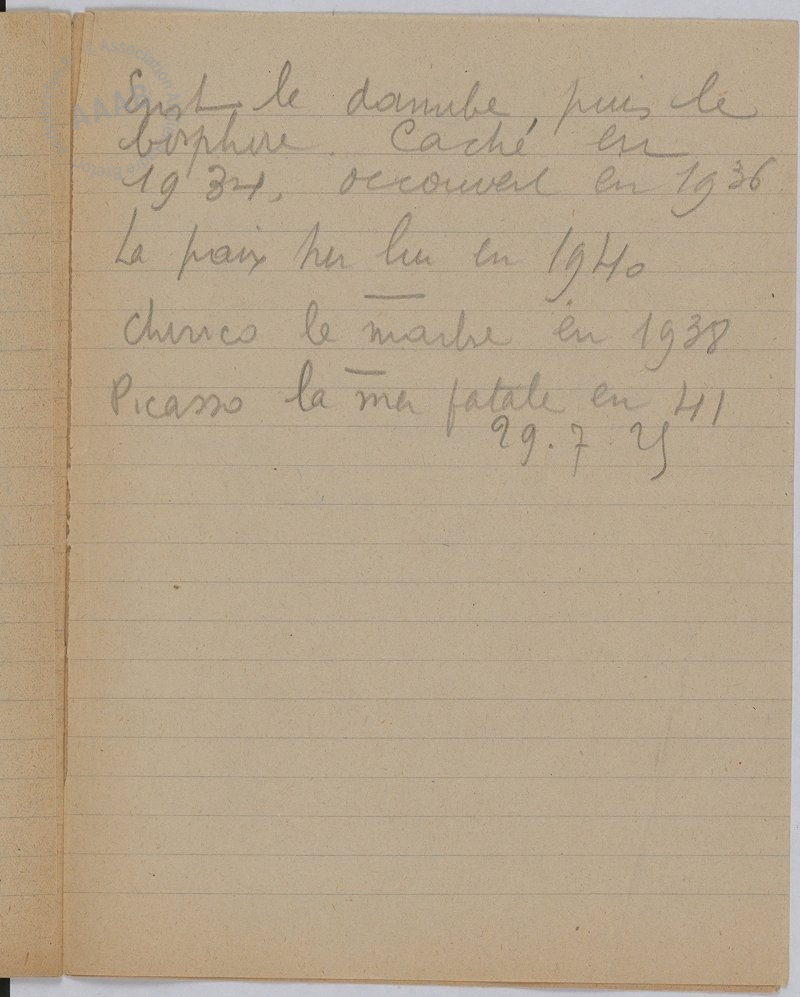 Ernst le danube, puis le
bosphore. Caché en
1934, découvert en 1936
La paix sur lui en 1940
Chirico le marbre en 1938
Picasso la mer fatale en 41
29.7 25
AAAB